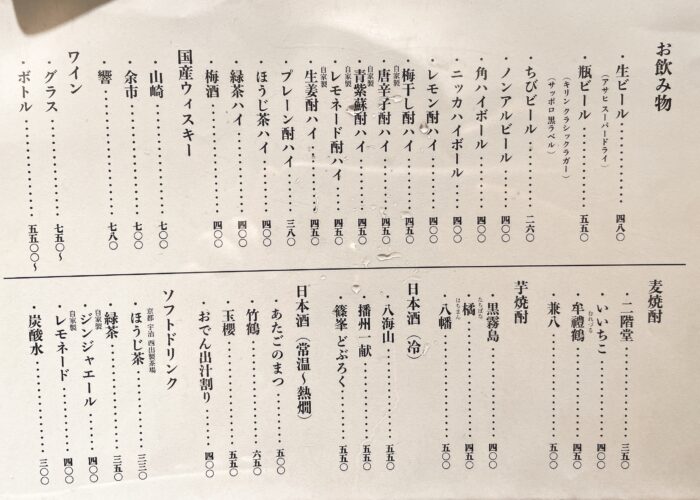 お飲み物
・生ビール…………四八〇
（アサヒスーパードライ）
・瓶ビール…………五五〇
（キリン クラシックラガー）
（サッポロ 黒ラベル）
・ちびビール…………二六〇
・ノンアルビール…………四〇〇
・角ハイボール…………四〇〇
・ニッカハイボール…………四〇〇
・レモン酎ハイ…………四〇〇
・梅干し酎ハイ…………四五〇
・自家製 唐辛子酎ハイ…………四五〇
・自家製 青紫蘇酎ハイ…………四五〇
・自家製 レモネード酎ハイ…………四五〇
・自家製 生姜酎ハイ…………四五〇
・プレーン酎ハイ…………三八〇
・ほうじ茶ハイ…………四〇〇
・緑茶ハイ…………四〇〇
・梅酒…………四〇〇
国産ウィスキー
・山崎…………七〇〇
・余市…………七〇〇
・響…………七八〇
ワイン
・グラス…………七五〇〜
・ボトル…………五五〇〇〜
麦焼酎
・二階堂…………三五〇
・いいちこ…………四〇〇
・牟禮鶴 むれづる…………四五〇
・兼八…………五五〇
芋焼酎
・黒霧島…………四〇〇
・橘 たちばな…………四五〇
・八幡 はちまん…………五〇〇
日本酒（冷）
・八海山…………五五〇
・播州一献…………五五〇
・篠峯どぶろく…………五五〇
日本酒（常温〜熱燗）
・あたごのまつ…………五〇〇
・竹鶴…………六五〇
・玉櫻…………五五〇
・おでん出汁割り…………四〇〇
ソフトドリンク
京都 宇治 西出製茶場
・ほうじ茶…………三三〇
・緑茶…………三五〇
・自家製 ジンジャエール…………四〇〇
・自家製 レモネード…………四〇〇
・炭酸水…………三〇〇